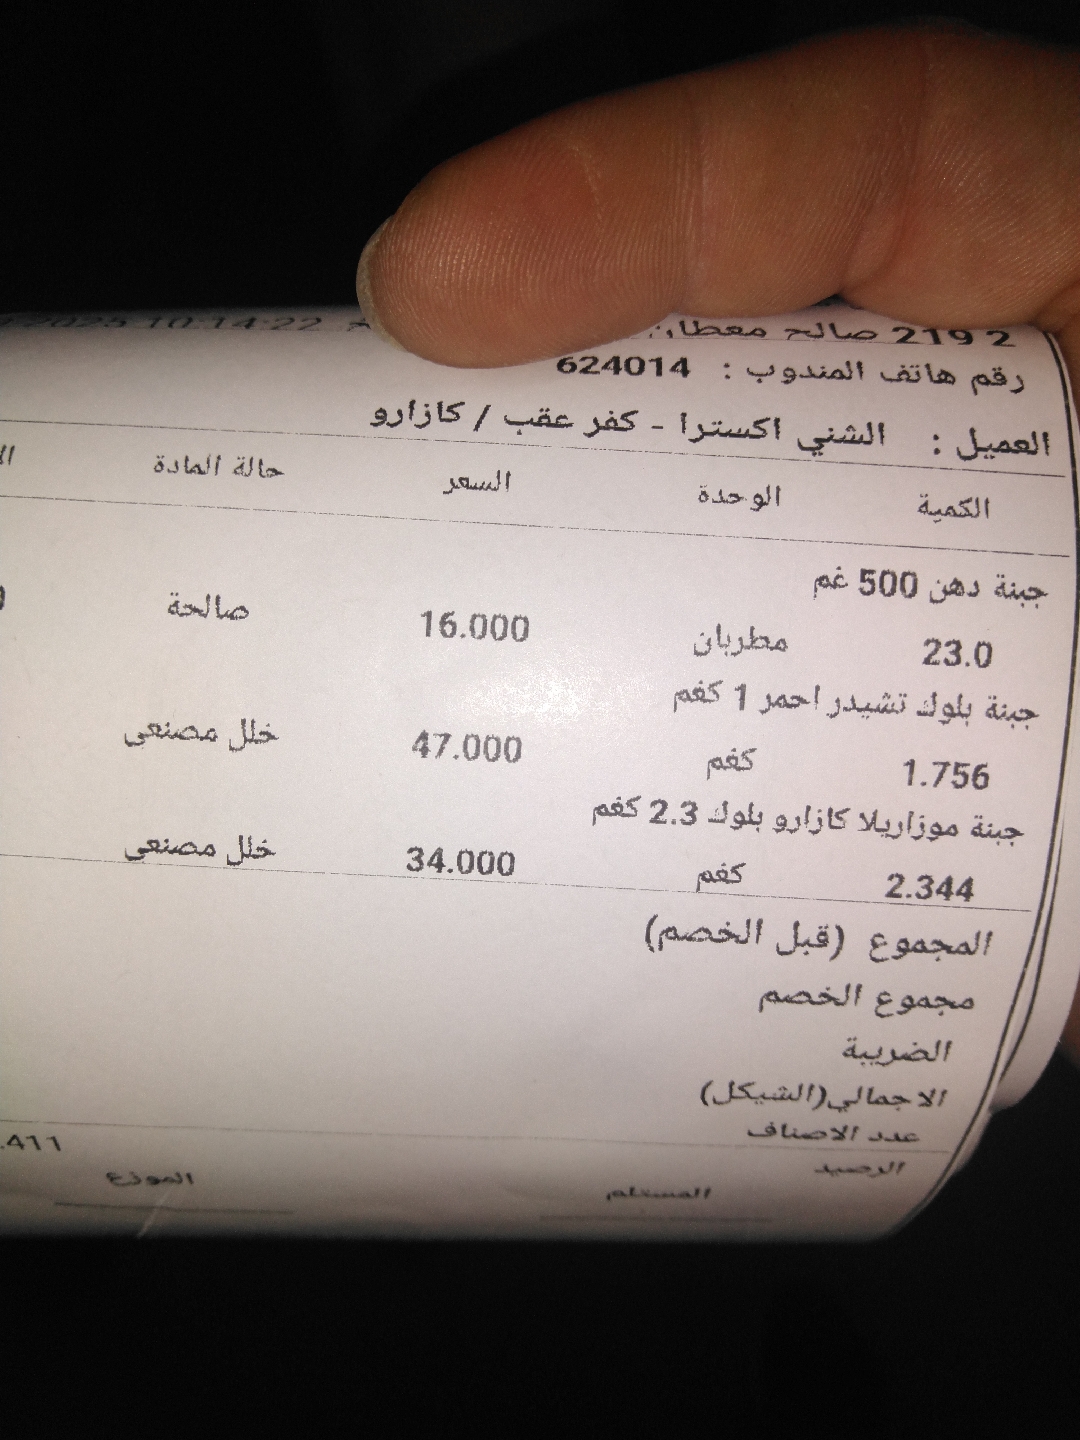 2025 10:14:22
2 219 صالح معطان
رقم هاتف المندوب : 624014
العميل : الشني اكسترا - كفر عقب / كازارو
الكمية الوحدة السعر حالة المادة
جبنة دهن 500 غم
23.0 مطربان 16.000 صالحة
جبنة بلوك تشيدر احمر 1 كغم
1.756 كغم 47.000 خلل مصنعي
جبنة موزاريلا كازارو بلوك 2.3 كغم
2.344 كغم 34.000 خلل مصنعي
المجموع (قبل الخصم)
مجموع الخصم
الضريبة
الاجمالي(الشيكل)
عدد الاصناف
الرصيد .411
المستلم الموزع